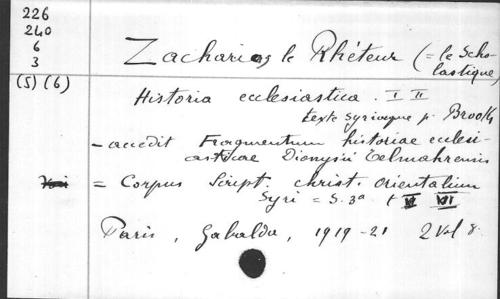 226
240
6
3
(5) (6)
Zacharias le Rhéteur (= le Scho-
lastique)
Historia ecclesiastica. I II
texte syriaque p. Brooks
- accedit Fragmentum historiae ecclesi-
asticae Dionysii Telmahrensis
= Corpus Script. christ. orientalium
Syri = S. 3a t VI VII
Paris, Gabalda, 1919-21 2 Vol 8.